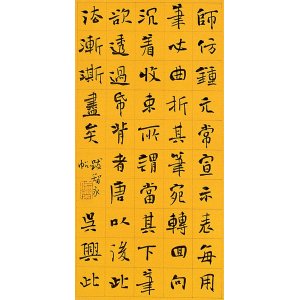 師仿鍾元常宣示表每用
筆必曲折其筆宛轉回向
沉着收束所謂當其下筆
欲透過帋背者唐以後此
法漸澌盡矣
跋智永
帖
吳興此